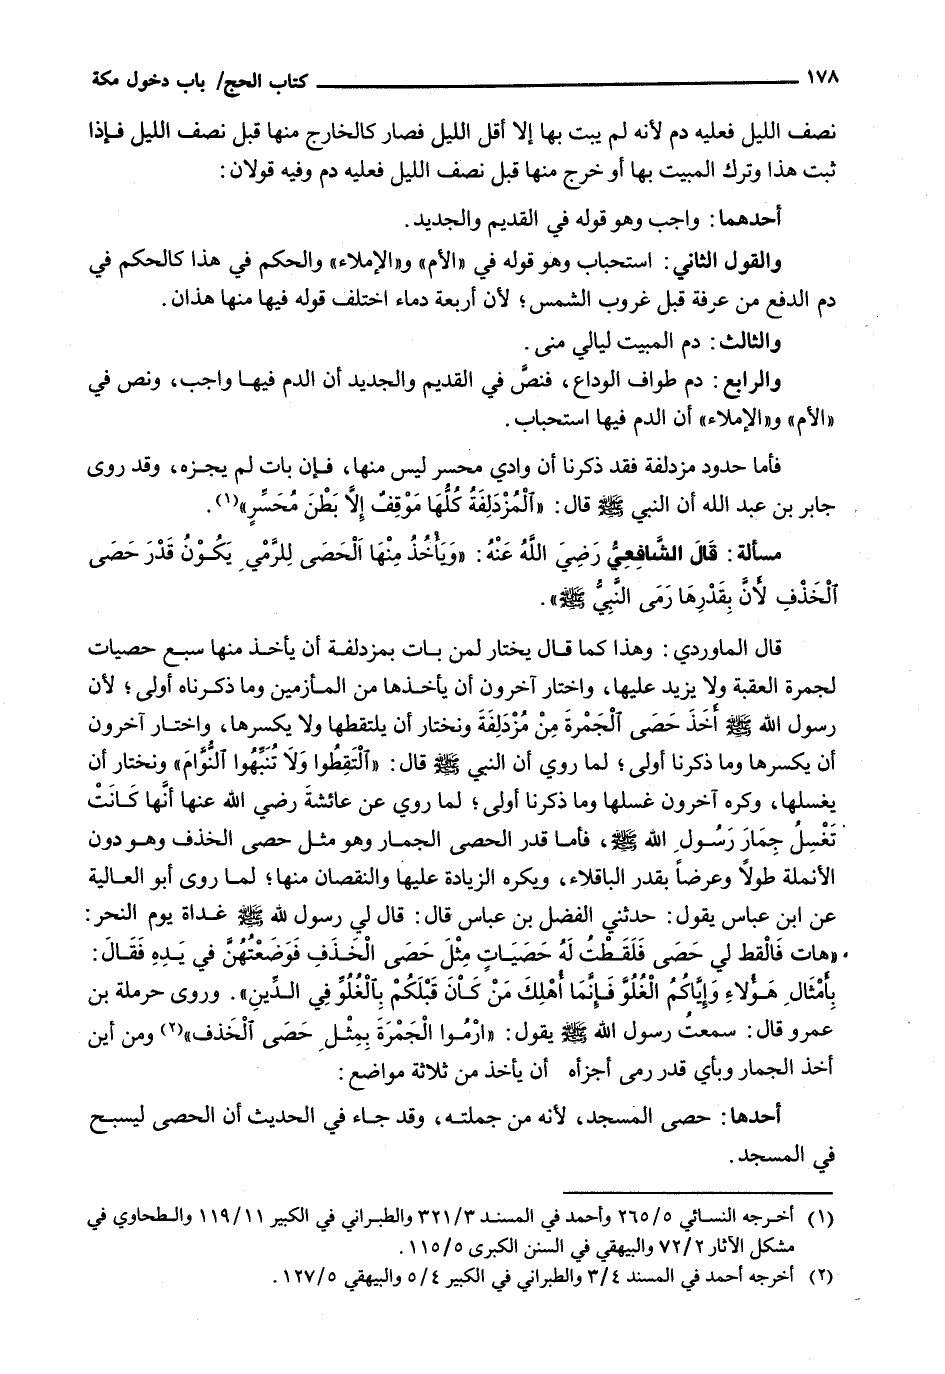 ١٧٨ كتاب الحج/ باب دخول مكة
نصف الليل فعليه دم لأنه لم يبت بها إلا أقل الليل فصار كالخارج منها قبل نصف الليل فإذا
ثبت هذا وترك المبيت بها أو خرج منها قبل نصف الليل فعليه دم وفيه قولان:
أحدهما: واجب وهو قوله في القديم والجديد.
والقول الثاني: استحباب وهو قوله في «الأم» و«الإملاء» والحكم في هذا كالحكم في
دم الدفع من عرفة قبل غروب الشمس؛ لأن أربعة دماء اختلف قوله فيها منها هذان.
والثالث: دم المبيت ليالي منى.
والرابع: دم طواف الوداع، فنصَّ في القديم والجديد أن الدم فيها واجب، ونص في
«الأم» و«الإملاء» أن الدم فيها استحباب.
فأما حدود مزدلفة فقد ذكرنا أن وادي محسر ليس منها، فإن بات لم يجزه، وقد روى
جابر بن عبد الله أن النبي ﷺ قال: «الْمُزْدَلِفَةُ كُلُّهَا مَوْقِفٌ إِلَّا بَطْنَ مُحَسِّرٍ»(١).
مسألة: قَالَ الشَّافِعِيُّ رَضِيَ اللَّهُ عَنْهُ: «وَيَأْخُذُ مِنْهَا الْحَصَى لِلرَّمْيِ يَكُوْنُ قَدْرَ حَصَى
الْخَذْفِ لأَنَّ بِقَدْرِهَا رَمَى النَّبِيُّ ﷺ».
قال الماوردي: وهذا كما قال يختار لمن بات بمزدلفة أن يأخذ منها سبع حصيات
لجمرة العقبة ولا يزيد عليها، واختار آخرون أن يأخذها من المأزمين وما ذكرناه أولى؛ لأن
رسول الله ﷺ أَخَذَ حَصَى الْجَمْرةَ مِنْ مُزْدَلِفَةَ ونختار أن يلتقطها ولا يكسرها، واختار آخرون
أن يكسرها وما ذكرنا أولى؛ لما روي أن النبي ﷺ قال: «الْتَقِطُوا وَلَا تُنَبِّهُوا النُّوَّامَ» ونختار أن
يغسلها، وكره آخرون غسلها وما ذكرنا أولى؛ لما روي عن عائشةَ رضي الله عنها أَنَّها كَانَتْ
تَغْسِلُ جِمَارَ رَسُولِ الله ﷺ، فأما قدر الحصى الجمار وهو مثل حصى الخذف وهو دون
الأنملة طولاً وعرضاً بقدر الباقلاء، ويكره الزيادة عليها والنقصان منها؛ لما روى أبو العالية
عن ابن عباس يقول: حدثني الفضل بن عباس قال: قال لي رسول لله ﷺ غداة يوم النحر:
«هات فَالْقط لي حَصَى فَلَقَطْتُ لَهُ حَصَيَاتٍ مِثْلَ حَصَى الْخَذَفِ فَوَضَعْتُهُنَّ في يَدِهِ فَقَالَ:
بِأَمْثَالِ هَؤُلاءِ وَإِيَّاكُمُ الْغُلُوَّ فَإِنَّمَا أَهْلِكَ مَنْ كَانَ قَبْلَكُمْ بِالْغُلُوِّ فِي الدِّينِ». وروى حرملة بن
عمرو قال: سمعتُ رسول الله ﷺ يقول: «ارْمُوا الْجَمْرَةَ بِمِثْلِ حَصَى الْخَذف»(٢) ومن أين
أخذ الجمار وبأي قدر رمى أجزأه أن يأخذ من ثلاثة مواضع:
أحدها: حصى المسجد، لأنه من جملته، وقد جاء في الحديث أن الحصى ليسبح
في المسجد.
(١) أخرجه النسائي ٢٦٥/٥ وأحمد في المسند ٣٢١/٣ والطبراني في الكبير ١١٩/١١ والطحاوي في
مشكل الآثار ٧٢/٢ والبيهقي في السنن الكبرى ١١٥/٥.
(٢) أخرجه أحمد في المسند ٣/٤ والطبراني في الكبير ٥/٤ والبيهقي ١٢٧/٥.